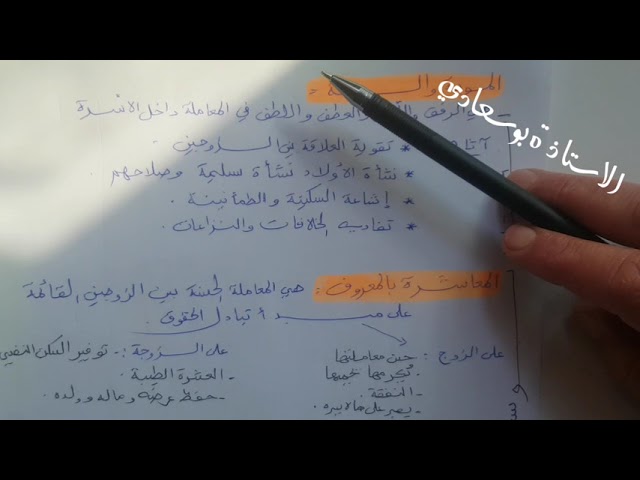 المودة والرحمة :
- هي الرفق والعطف واللطف في المعاملة داخل الأسرة
* تقوية العلاقة بين الزوجين .
* نشأة الأولاد نشأة سليمة وصلاحهم .
* إشاعة السكينة والطمأنينة .
* تفادي الخلافات والنزاعات .
الاستاذة بوسعادي
المعاشرة بالمعروف : هي المعاملة الحسنة بين الزوجين القائمة
على مبدأ تبادل الحقوق .
على الزوج : حسن معاملتها
النفقة
يصبر على
على الزوجة : - توفير السكن النفسي
- العشرة الطيبة
- حفظ عرضه وماله وولده .